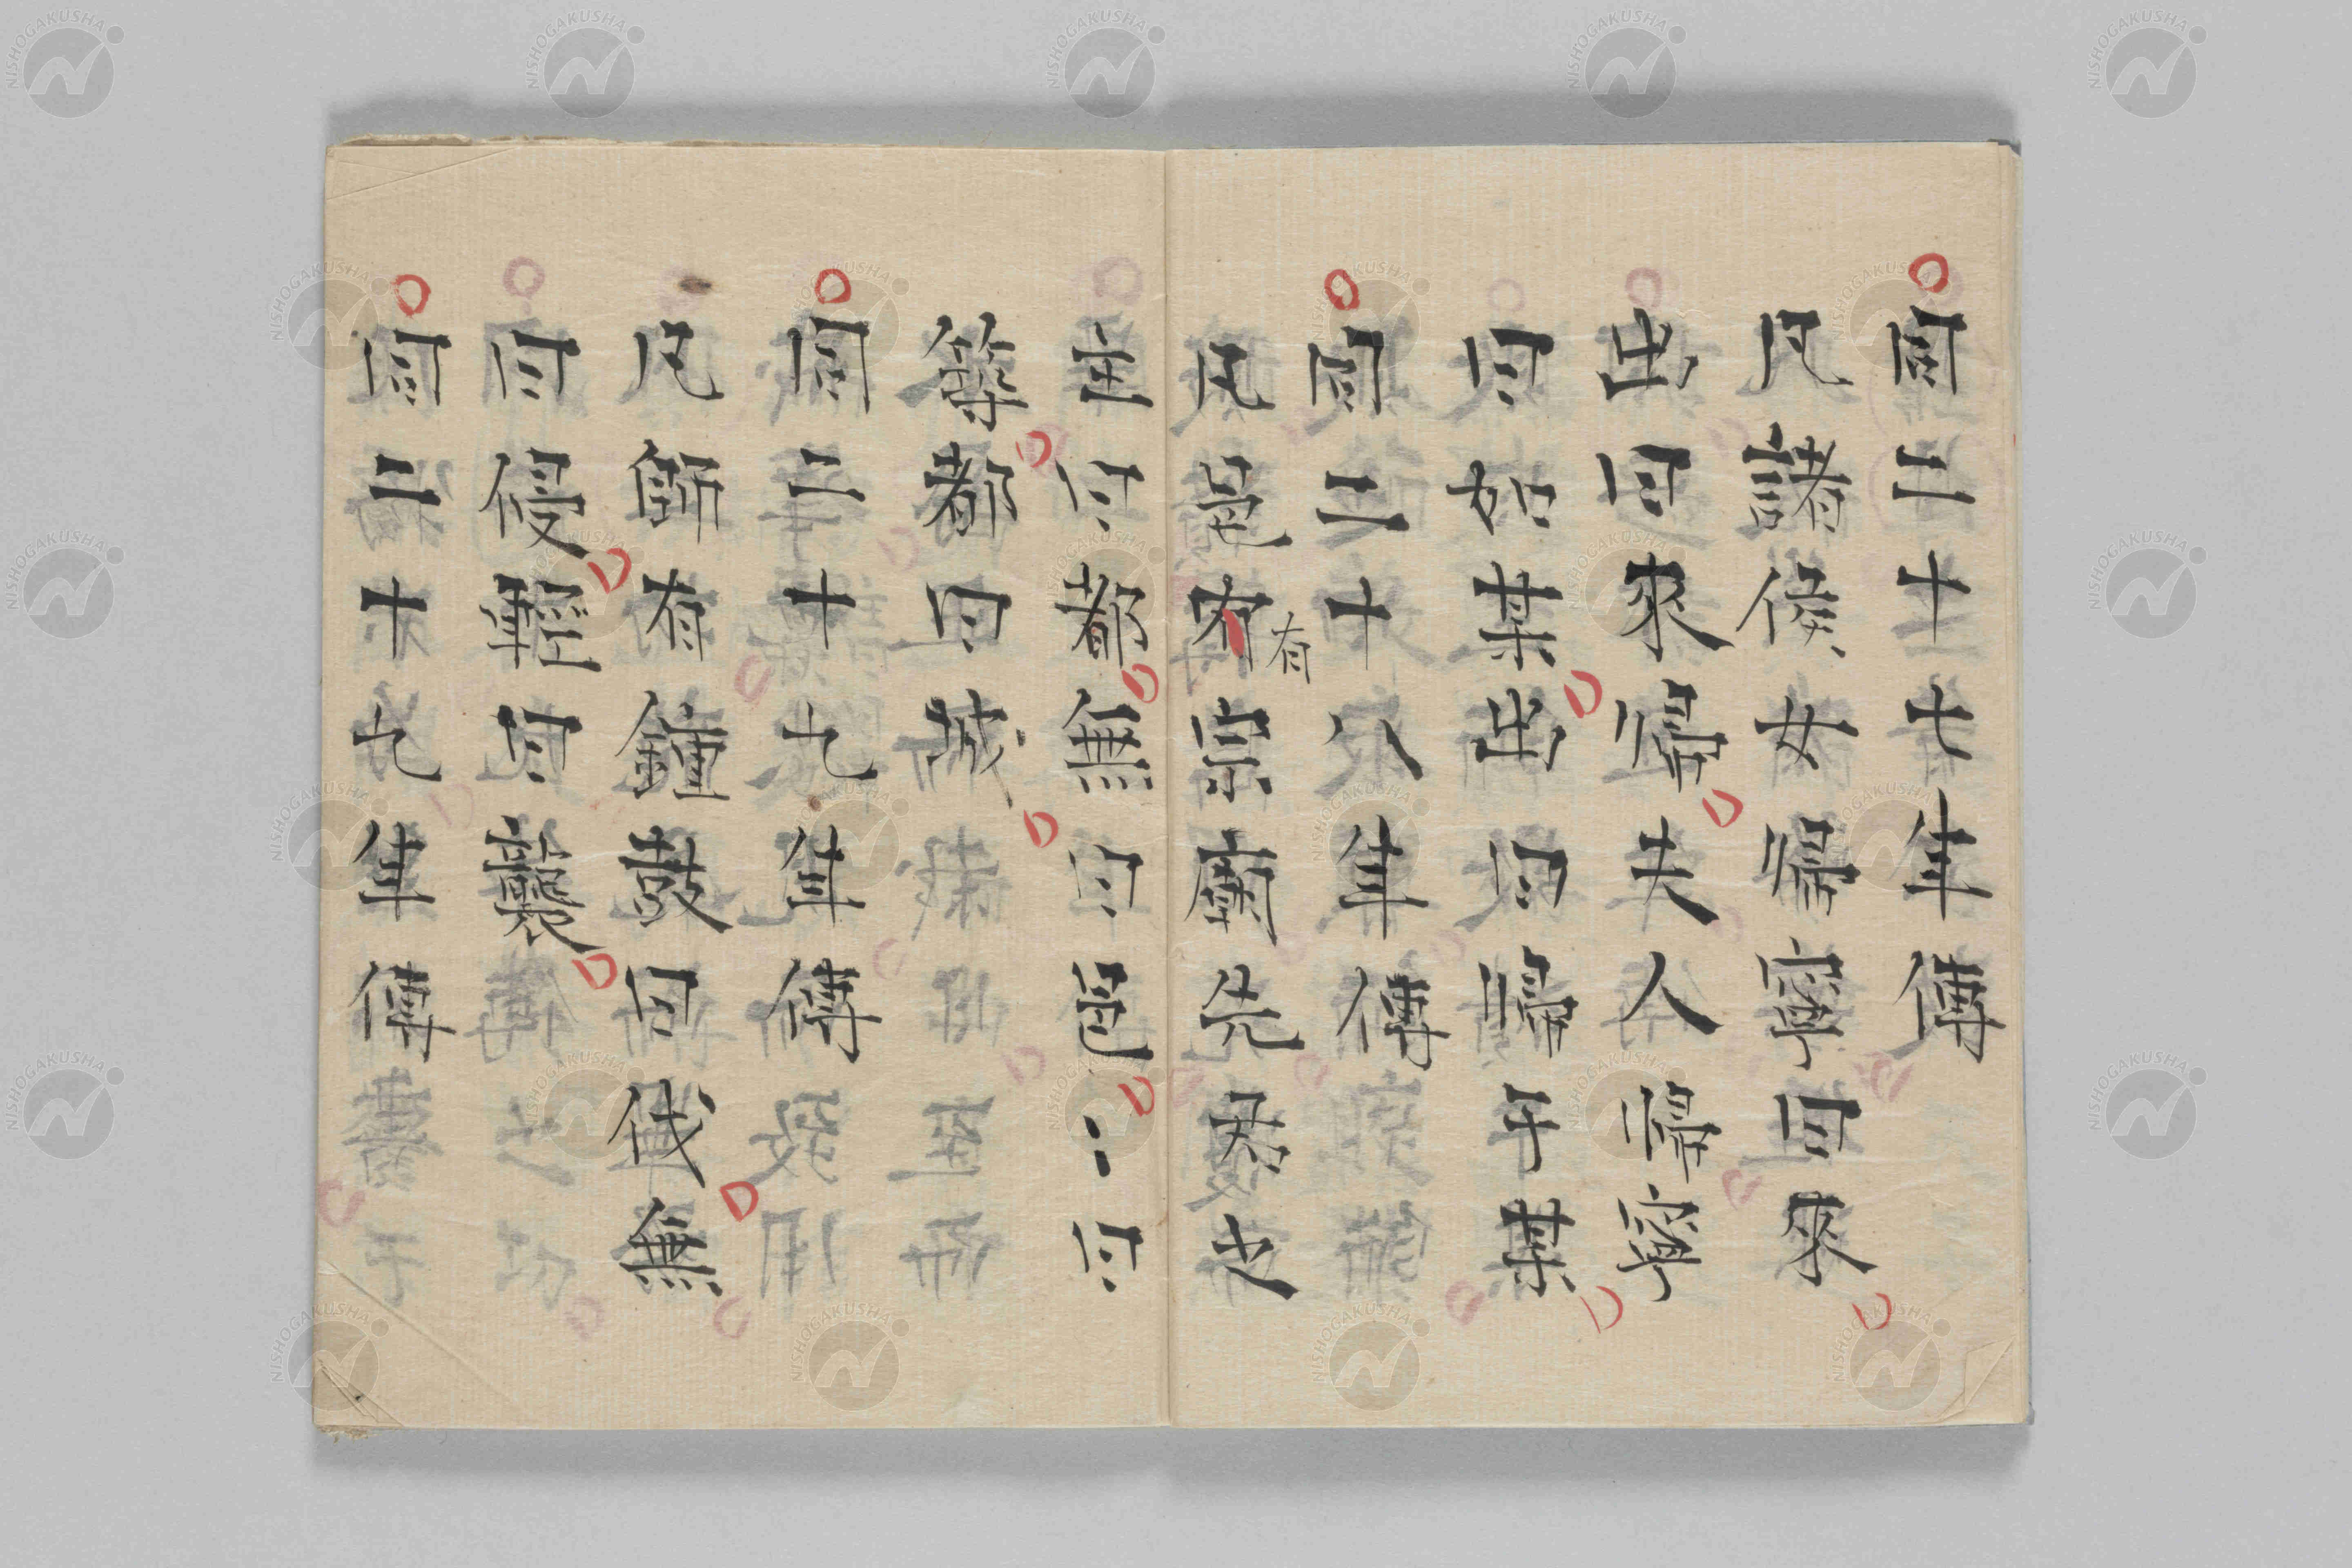 同二十七年傳
凡諸侯女歸寧曰來
出曰來歸夫人歸寧
曰如某出曰歸于某
同二十八年傳
凡邑有宗廟先君之
有
主曰都無曰邑〻曰
築都曰城
同二十九年傳
凡師有鐘鼓曰伐無
曰侵輕曰襲
同二十九年傳
NISHOGAKUSHA